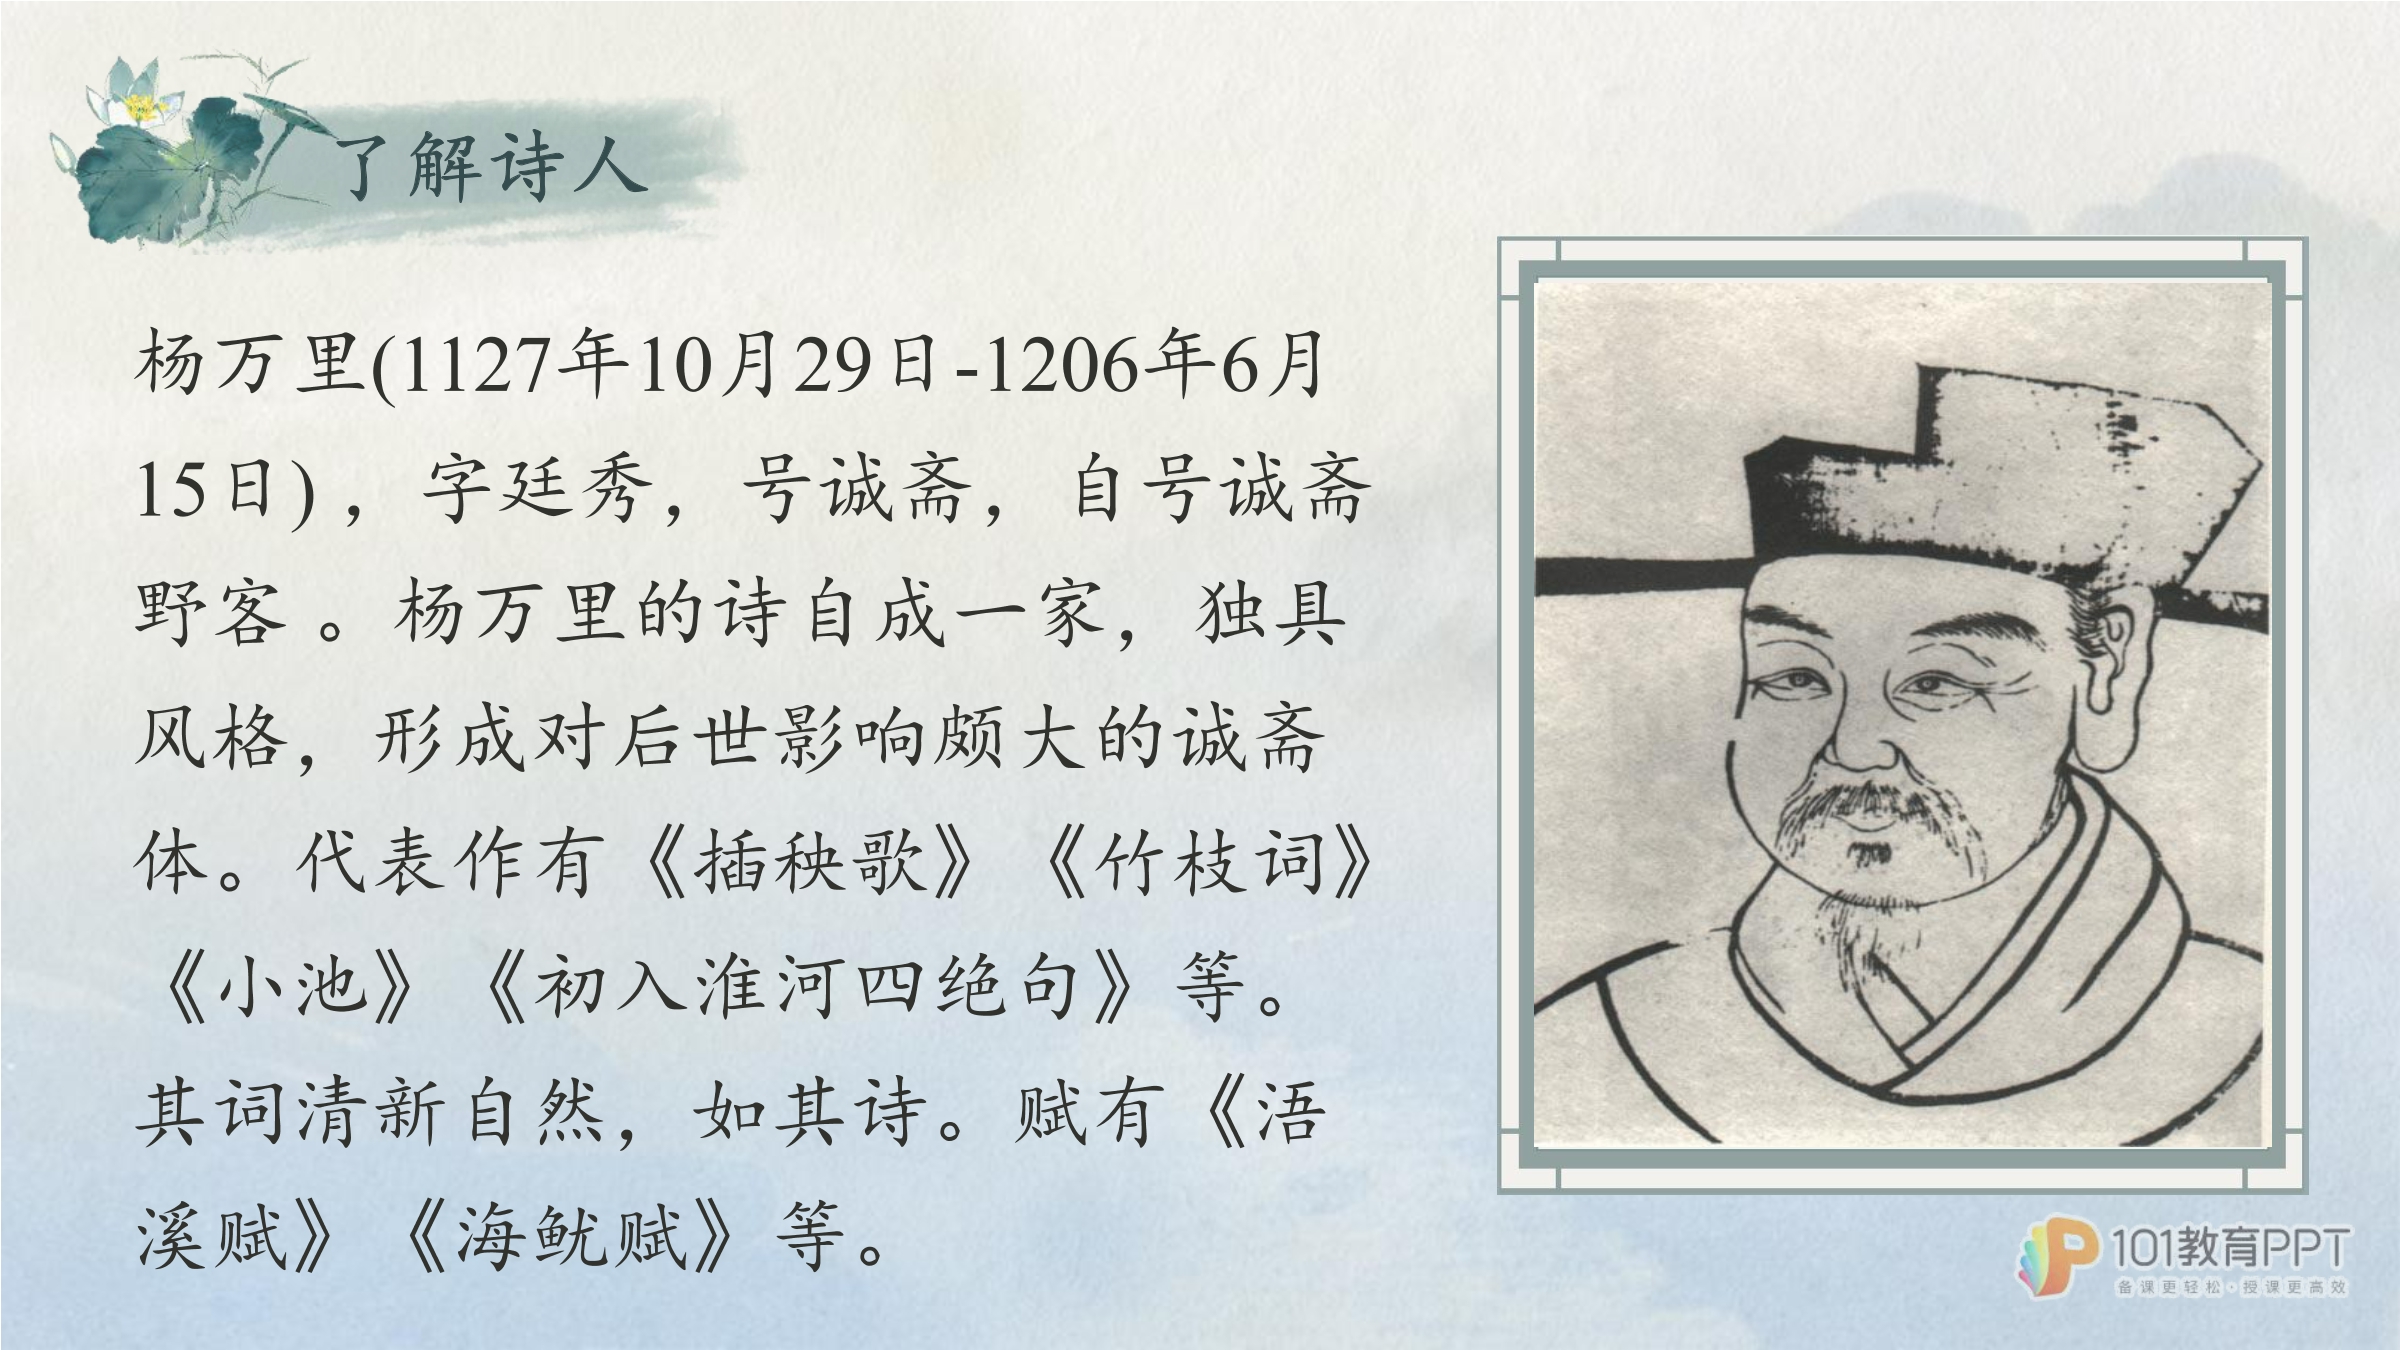 了解诗人
杨万里(1127年10月29日-1206年6月
15日) ，字廷秀，号诚斋，自号诚斋
野客 。杨万里的诗自成一家，独具
风格，形成对后世影响颇大的诚斋
体。代表作有《插秧歌》《竹枝词》
《小池》《初入淮河四绝句》等。
其词清新自然，如其诗。赋有《浯
溪赋》《海鱿赋》等。
101教育PPT
备课更轻松·授课更高效